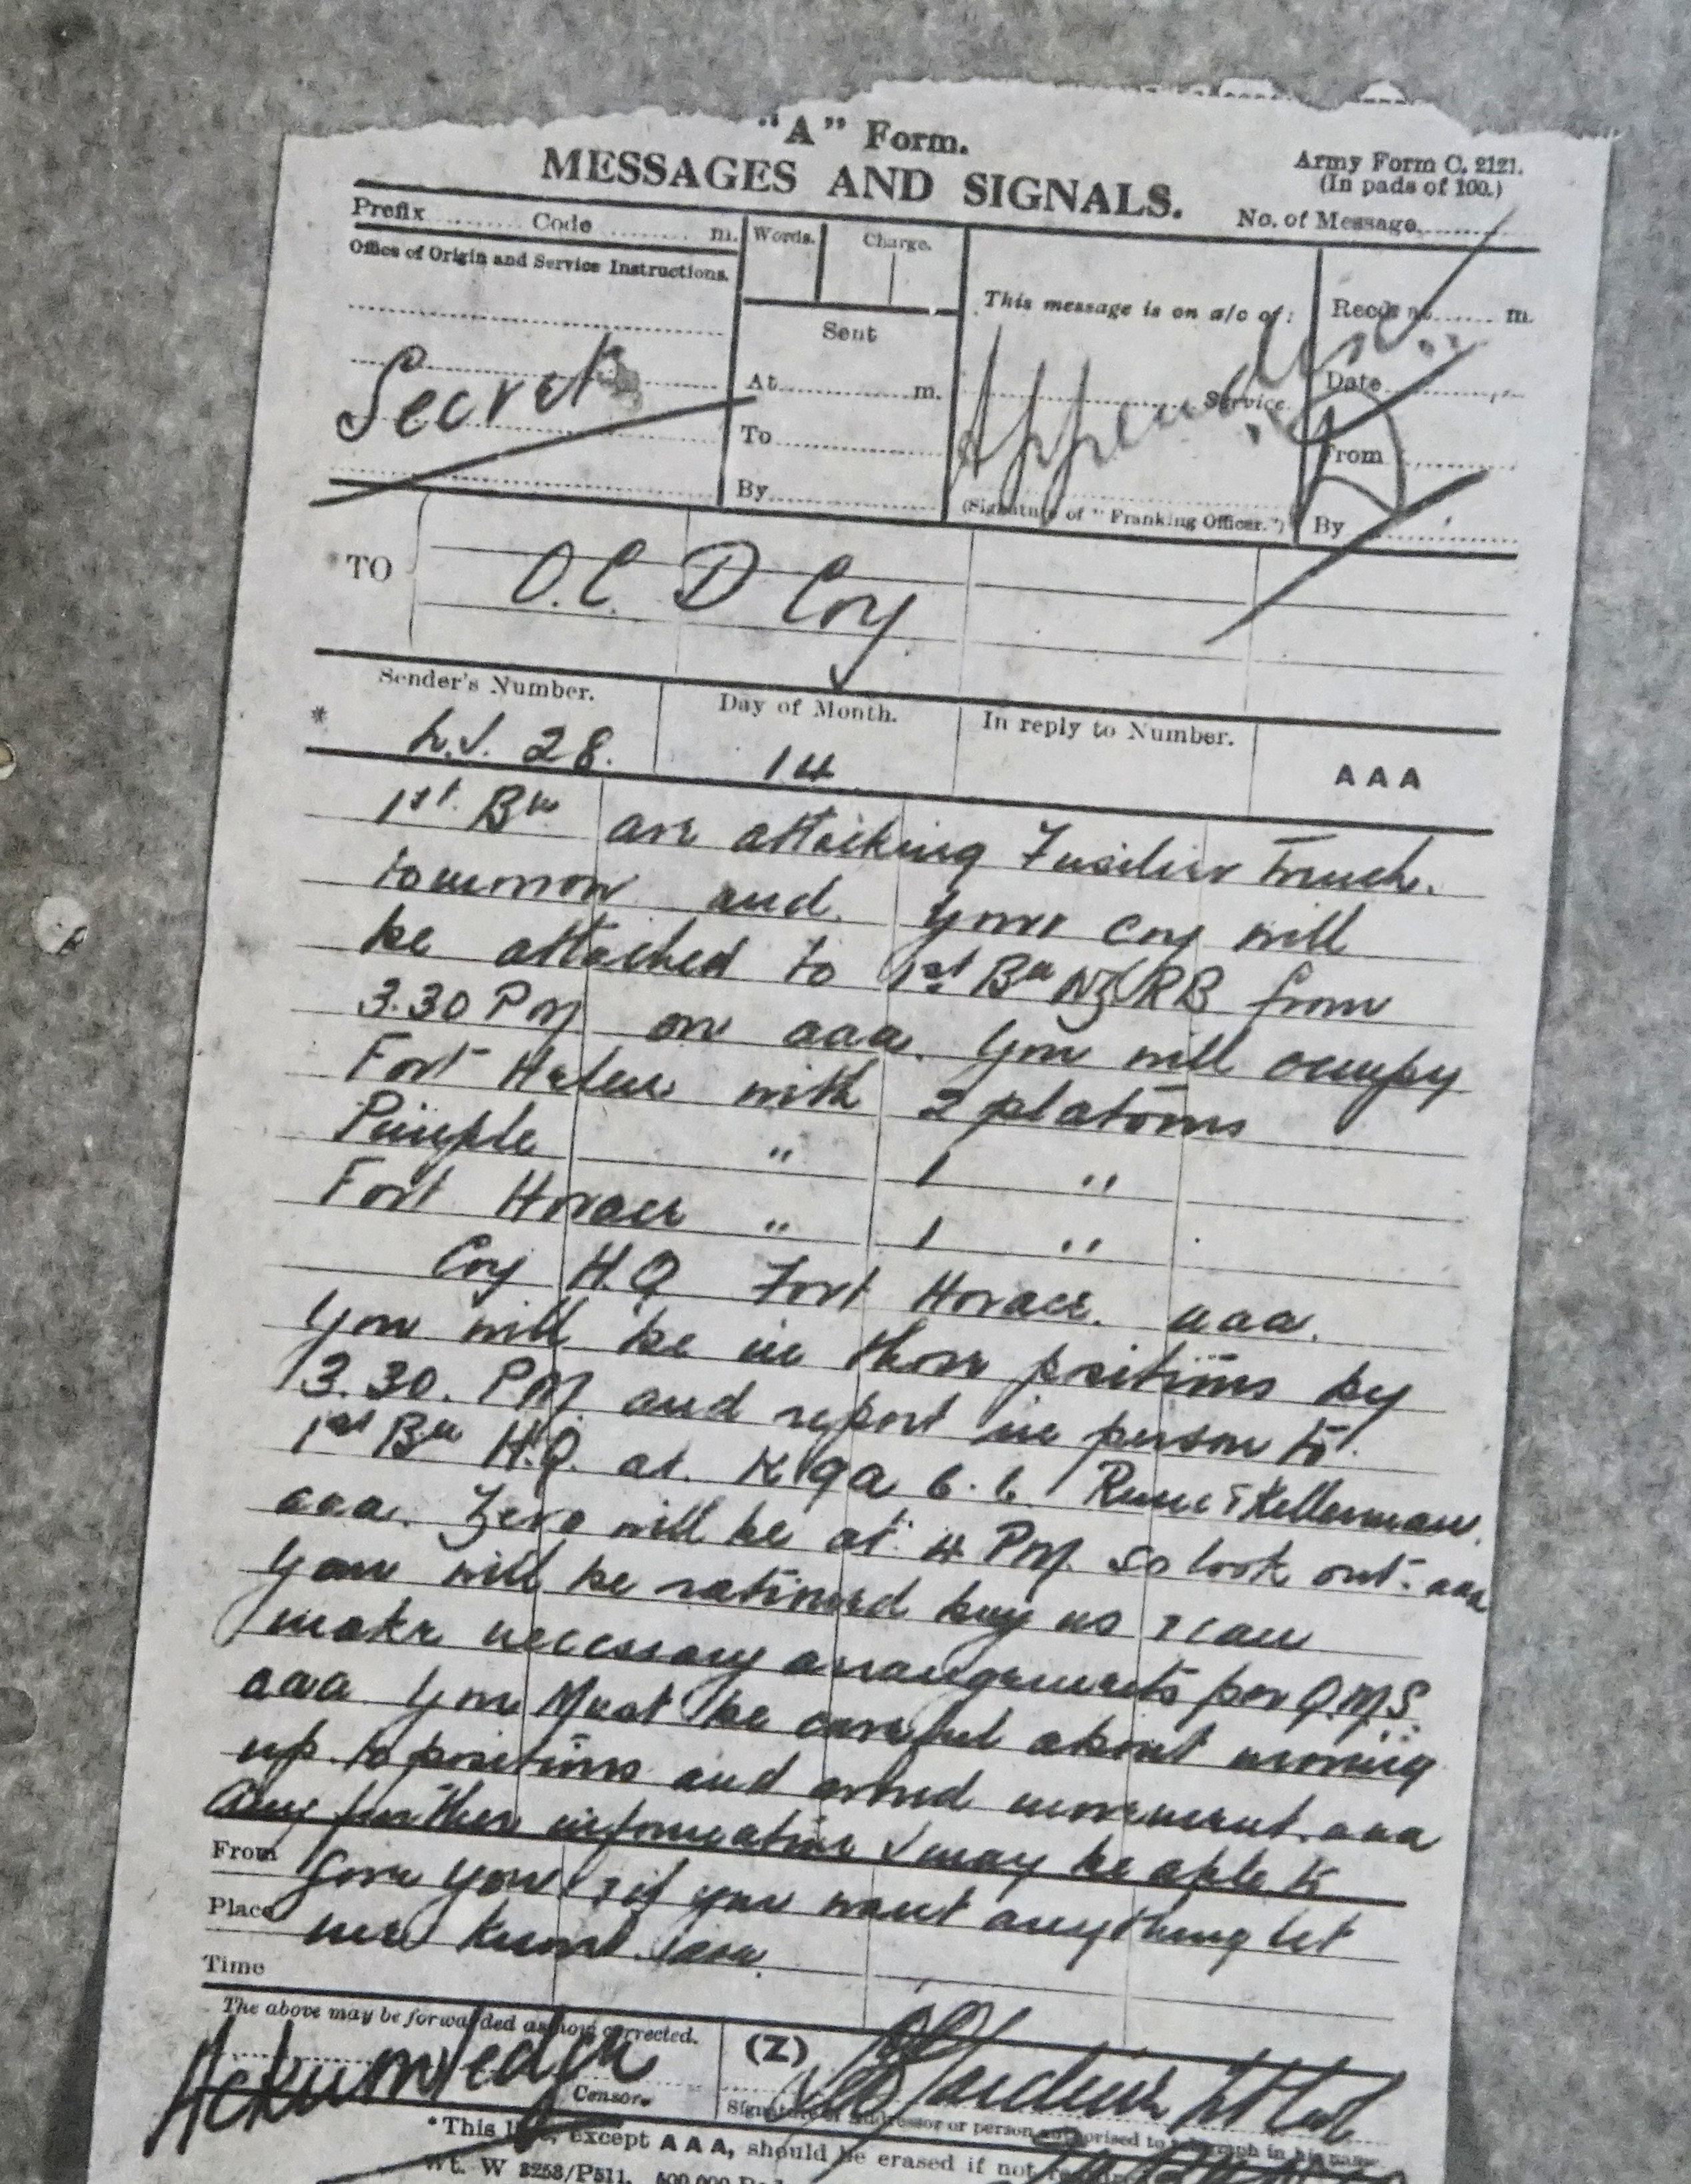 "A" Form.
MESSAGES AND SIGNALS.
Army Form C. 2121.
(In pads of 100.)
No. of Message
Prefix Code m.
Words. Charge.
Office of Origin and Service Instructions.
Secret
Sent
At m.
To
By
This message is on a/c of:
Appendix
Service.
(Signature of "Franking Officer.")
Recd at m.
Date
From
By
TO O.C. D Coy
Sender's Number.
Day of Month.
In reply to Number.
AAA
* 28. 14
1st Bn are attacking Fusilier Trench.
tomorrow and your Coy will
be attached to 1st Bn NZRB from
3.30 PM on aaa. You will occupy
Fort Helen with 2 platoons
Pimple " 1 "
Fort Horace " 1 "
Coy H.Q Fort Horace. aaa.
You will be in those positions by
3.30. PM and report in person to
1st Bn H.Q. at K9a 6.6.
aaa. Zero will be at 4 PM so look out. aaa
You will be rationed by us I can
make necessary arrangements per Q.M.S
aaa You Must be careful about moving
up to positions and avoid movement. aaa
Any further information I may be able to
give you & if you want anything let
me know. aaa.
From
Place
Time
The above may be forwarded as now corrected.
(Z)
Acknowledge
Censor.
Signature of Addressor or person authorised to telegraph in his name.
*This line, except AAA, should be erased if not
Wt. W 3253/P511.